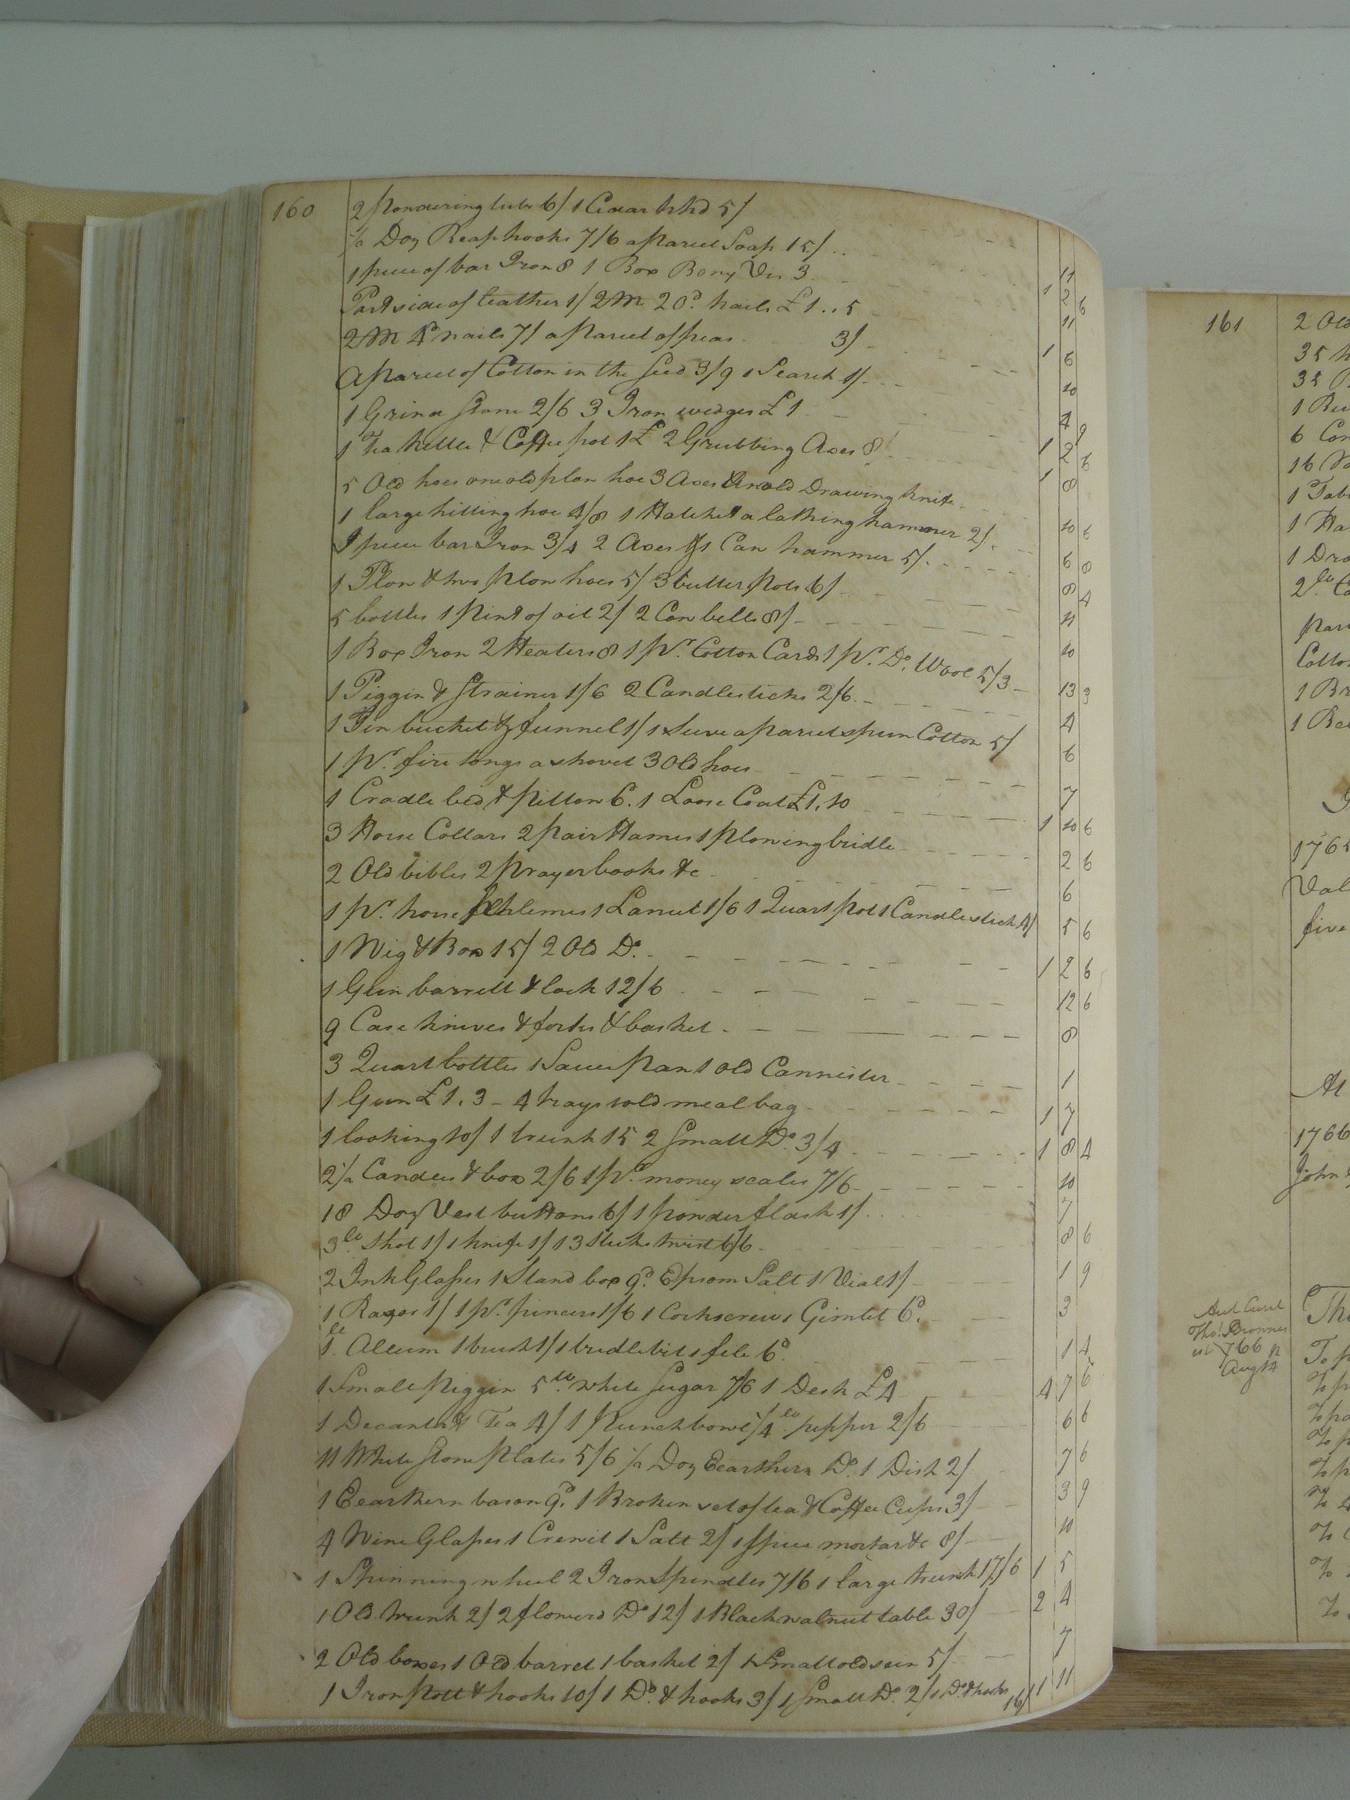 160
2 powdering tubs 6/ 1 Cedar hhd 5/
½ Doz Reaphooks 7/6 a parcel Soap 15/ 11
1 piece of bar Iron 8 1 Box Rasny Ves 3 1 2 6
Part side of leather 1/ 2M 20d nails £1..5 11
2M 4d nails 7/ a parcel of peas 3/ 1 6
A parcel of Cotton in the Seed 3/9 1 Search 1/ 10
1 Grind Stone 2/6 3 Iron wedges £1 4 9
1 Tea kettle & Coffee pot 1£ 2 Grubbing Axes 8 1 2 6
5 Old hoes one old plow hoe 3 Axes & an old Drawing knife 1 8
1 large hilling hoe 4/8 1 Hatchet a lathing hammer 2/ 10 6
1 piece bar Iron 3/4 2 Axes & 1 Caw hammer 5/ 6 8
1 Plow & two plow hoes 5/ 3 butter pots 6/ 8 4
5 bottles 1 pint of oil 2/ 2 Cow bells 8/ 11
1 Box Iron 2 Heaters 8 1 pr. Cotton Cards 1 pr. Do. Wool 5/3 10
1 Piggin & Strainer 1/6 2 Candlesticks 2/6 13 3
1 Tin bucket & funnel 1/ 1 Sieve a parcel spun Cotton 5/ 4
1 pr. fire tongs a shovel 3 Old hoes 6
1 Cradle bed & pillow 6. 1 Loose Coat £1.10 7
3 Horse Collars 2 pair Hames 1 plowing bridle 1 10 6
2 Old bibles 2 prayer books &c 2 6
1 pr. horse phlemes 1 Lancet 1/6 1 Quart pot 1 Candlestick 4/ 6
1 Wig & Box 15/ 2 Old Do. 5 6
1 Gun barrell & lock 12/6 1 2 6
9 Case knives & forks & basket 12 6
3 Quart bottles 1 Sauce pan 1 old Cannister 8
1 Gun £1.3 - 4 trays 1 old meal bag 1
1 looking 10/ 1 trunk 15 2 Small Do. 3/4 1 7
2½ Candles & box 2/6 1 pr. money scales 7/6 1 8 4
18 Doz Vest buttons 6/ 1 powder flask 1/ 10
3 lb Shot 1/ 1 knife 1/ 13 Sticks twist 6/6 7
2 Ink Glasses 1 Stand box 9d. Epsom Salt 1 Vial 1/ 8 6
1 Razor 1/ 1 pr. pincers 1/6 1 Corkscrew 1 Gimlet 6d. 1 9
1 lb Allum 1 brush 1/ 1 bridle bit 1 file 6d 3
1 Small piggin 5 lb white Sugar 7/6 1 Desk £4 1 4
1 Decanter & Tea 4/ 1 Punch bowl 5/ ¼ lb pepper 2/6 4 7 6
11 White Stone Plates 5/6 ½ Doz Eearthern Do. 1 Dish 2/ 6 6
1 Eearthern bason 9d. 1 Broken set of tea & Coffee Cups 3/ 7 6
4 Wine Glasses 1 Crewit 1 Salt 2/ 1 spice mortar &c 8/ 3 9
1 Spinning wheel 2 Iron Spindles 7/6 1 large trunk 17/6 10
1 Old trunk 2/ 2 flowerd Do 12/ 1 Black walnut table 30/ 1 5
2 Old boxes 1 Old barrel 1 basket 2/ 1 Small old 5/ 2 4
1 Iron Pott & hooks 10/ 1 Do. & hooks 3/ 1 Small Do. 2/ 1 Do. & hooks 16/ 7
1 11
161
2 Old
35
35
1
6
16
1 Tab
1 Ha
1 Dra
2 lb
par
Cotton
1 Br
1 Bel
1765
Val
five
At
1766
John
Thos
1766
Augt
The
To
To
To
To
To
To
To
To
To
To